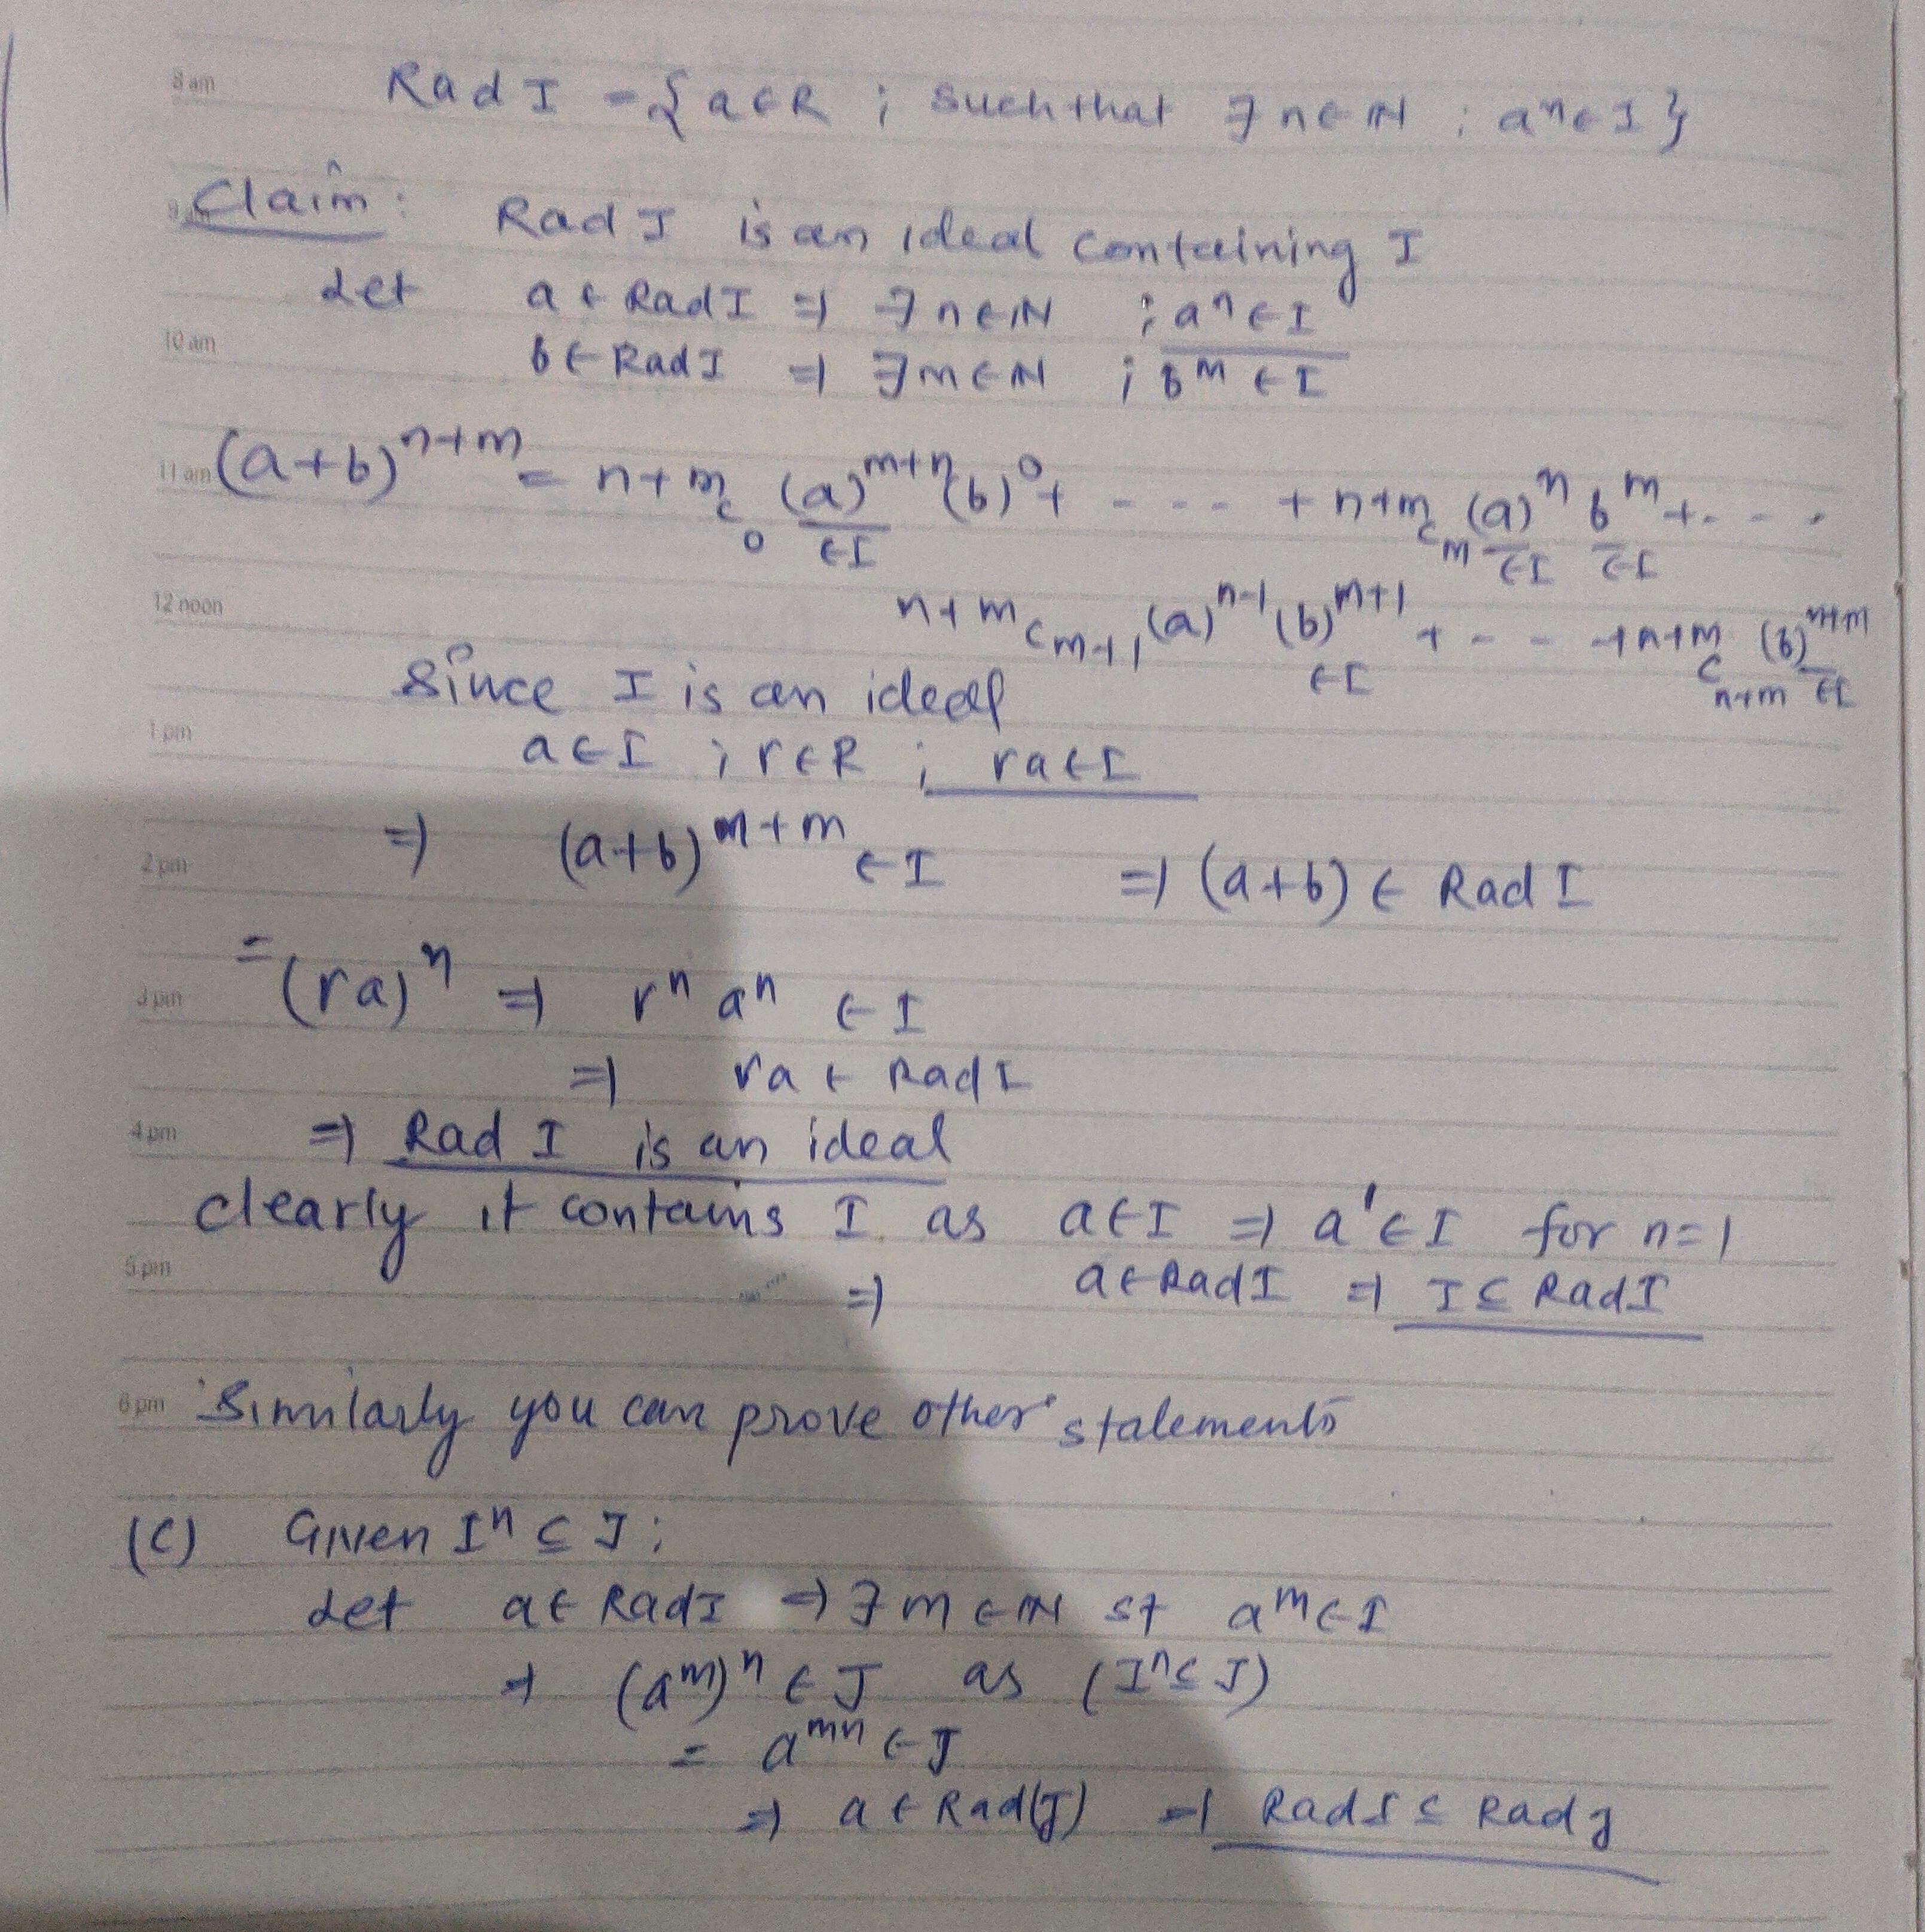 8 am
Rad I = { a ∈ R ; such that ∃ n ∈ ℕ ; aⁿ ∈ I }
Claim: Rad I is an ideal containing I
9 am
Let a ∈ Rad I ⇒ ∃ n ∈ ℕ ; aⁿ ∈ I
10 am
b ∈ Rad I ⇒ ∃ m ∈ ℕ ; bᵐ ∈ I
11 am (a+b)^{n+m} = n+m_{C_0} (a)^{m+n} (b)^0 + - - - - + n+m_{C_m} (a)^n b^m + - - -
∈I ∈I ∈I
12 noon
n+m_{C_{m+1}} (a)^{n-1} (b)^{m+1} + - - - + n+m_{C_{n+m}} (b)^{n+m}
∈I ∈I
Since I is an ideal
1 pm
a ∈ I ; r ∈ R ; ra ∈ I
2 pm
⇒ (a+b)^{n+m} ∈ I ⇒ (a+b) ∈ Rad I
3 pm
= (ra)ⁿ ⇒ rⁿ aⁿ ∈ I
⇒ ra ∈ Rad I
4 pm
⇒ Rad I is an ideal
clearly it contains I as a ∈ I ⇒ a' ∈ I for n=1
5 pm
⇒ a ∈ Rad I ⇒ I ⊆ Rad I
6 pm
Similarly you can prove other statements
(C) Given Iⁿ ⊆ J ;
Let a ∈ Rad I ⇒ ∃ m ∈ ℕ st aᵐ ∈ I
⇒ (aᵐ)ⁿ ∈ J as (Iⁿ ⊆ J)
= a^{mn} ∈ J
⇒ a ∈ Rad(J) ⇒ Rad I ⊆ Rad J